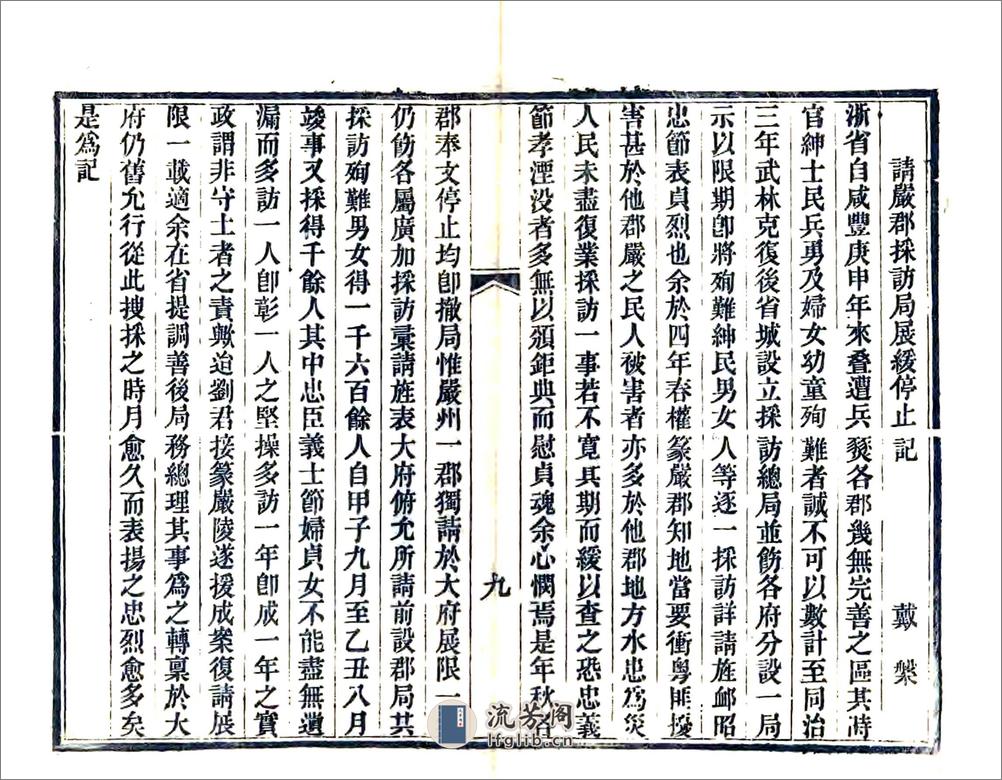 請嚴郡採訪局展緩停止記 戴槃
浙省自咸豐庚申年來叠遭兵燹各郡幾無完善之區其時
官紳士民兵勇及婦女幼童殉難者誠不可以數計至同治
三年武林克復後省城設立採訪總局並飭各府分設一局
示以限期卽將殉難紳民男女人等逐一採訪詳請旌邮昭
忠節表貞烈也余於四年春權篆嚴郡知地當要衝粵匪擾
害甚於他郡嚴之民人被害者亦多於他郡地方水患爲災
人民未盡復業採訪一事若不寬其期而緩以查之恐忠義
節孝湮没者多無以頒鉅典而慰貞魂余心憫焉是年秋各
九
郡奉文停止均卽撤局惟嚴州一郡獨請於大府展限一
仍飭各屬廣加採訪彙請旌表大府俯允所請前設郡局共
採訪殉難男女得一千六百餘人自甲子九月至乙丑八月
竣事又採得千餘人其中忠臣義士節婦貞女不能盡無遺
漏而多訪一人卽彰一人之堅操多訪一年卽成一年之實
政謂非守土者之責歟迨劉君接篆嚴陵遂援成案復請展
限一載適余在省提調善後局務總理其事爲之轉稟於大
府仍舊允行從此搜採之時月愈久而表揚之忠烈愈多矣
是爲記
流芳阁
lfglib.cn